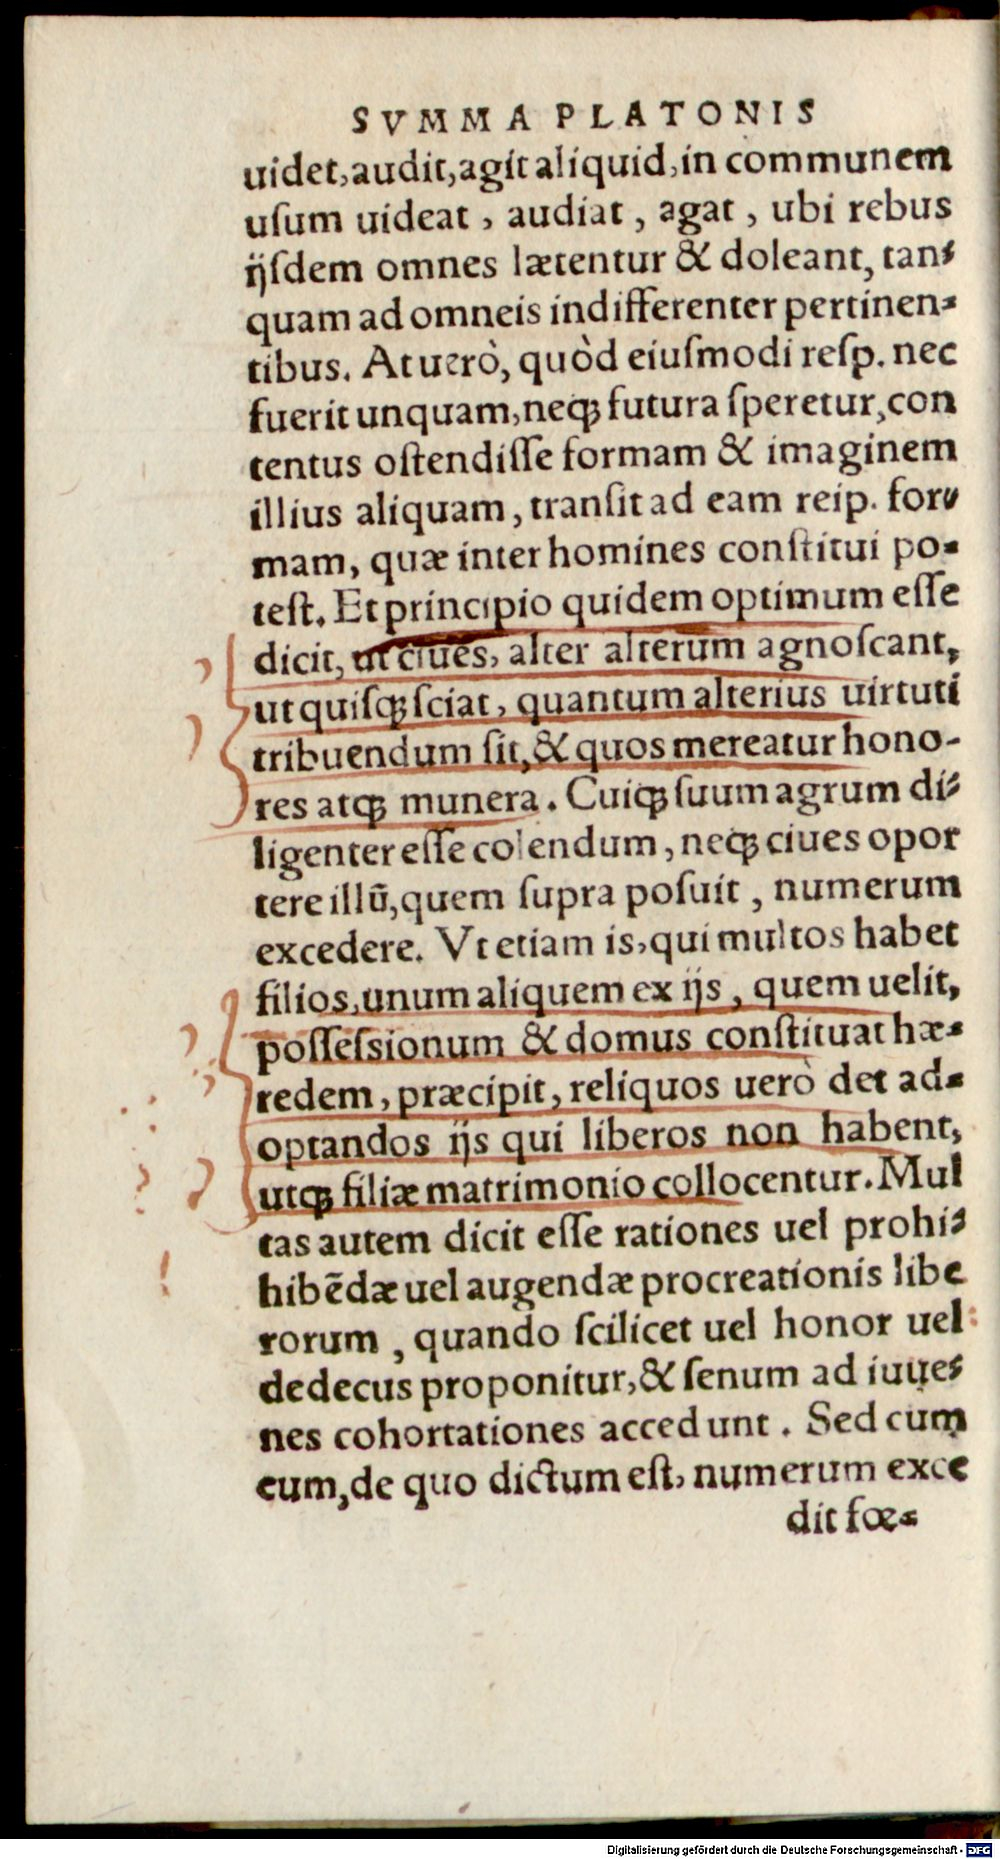 SVMMA PLATONIS
uidet, audit, agit aliquid, in communem
uſum uideat, audiat, agat, ubi rebus
ijſdem omnes lætentur & doleant, tan-
quam ad omneis indifferenter pertinen-
tibus. At uerò, quòd eiuſmodi reſp. nec
fuerit unquam, neqꝫ futura ſperetur, con
tentus oſtendiſſe formam & imaginem
illius aliquam, tranſit ad eam reip. for-
mam, quæ inter homines conſtitui po-
teſt. Et principio quidem optimum eſſe
dicit, ut ciues, alter alterum agnoſcant,
ut quiſqꝫ ſciat, quantum alterius uirtuti
tribuendum ſit, & quos mereatur hono-
res atqꝫ munera. Cuiqꝫ ſuum agrum di-
ligenter eſſe colendum, neqꝫ ciues opor
tere illũ, quem ſupra poſuit, numerum
excedere. Vt etiam is, qui multos habet
filios, unum aliquem ex ijs, quem uelit,
poſſeſsionum & domus conſtituat hæ-
redem, præcipit, reliquos uerò det ad-
optandos ijs qui liberos non habent,
utqꝫ filiæ matrimonio collocentur. Mul
tas autem dicit eſſe rationes uel prohi-
hibẽdæ uel augendæ procreationis libe
rorum, quando ſcilicet uel honor uel
dedecus proponitur, & ſenum ad iuue-
nes cohortationes accedunt. Sed cum
cum, de quo dictum eſt, numerum exce
dit fœ-
Digitalisierung gefördert durch die Deutsche Forschungsgemeinschaft - DFG